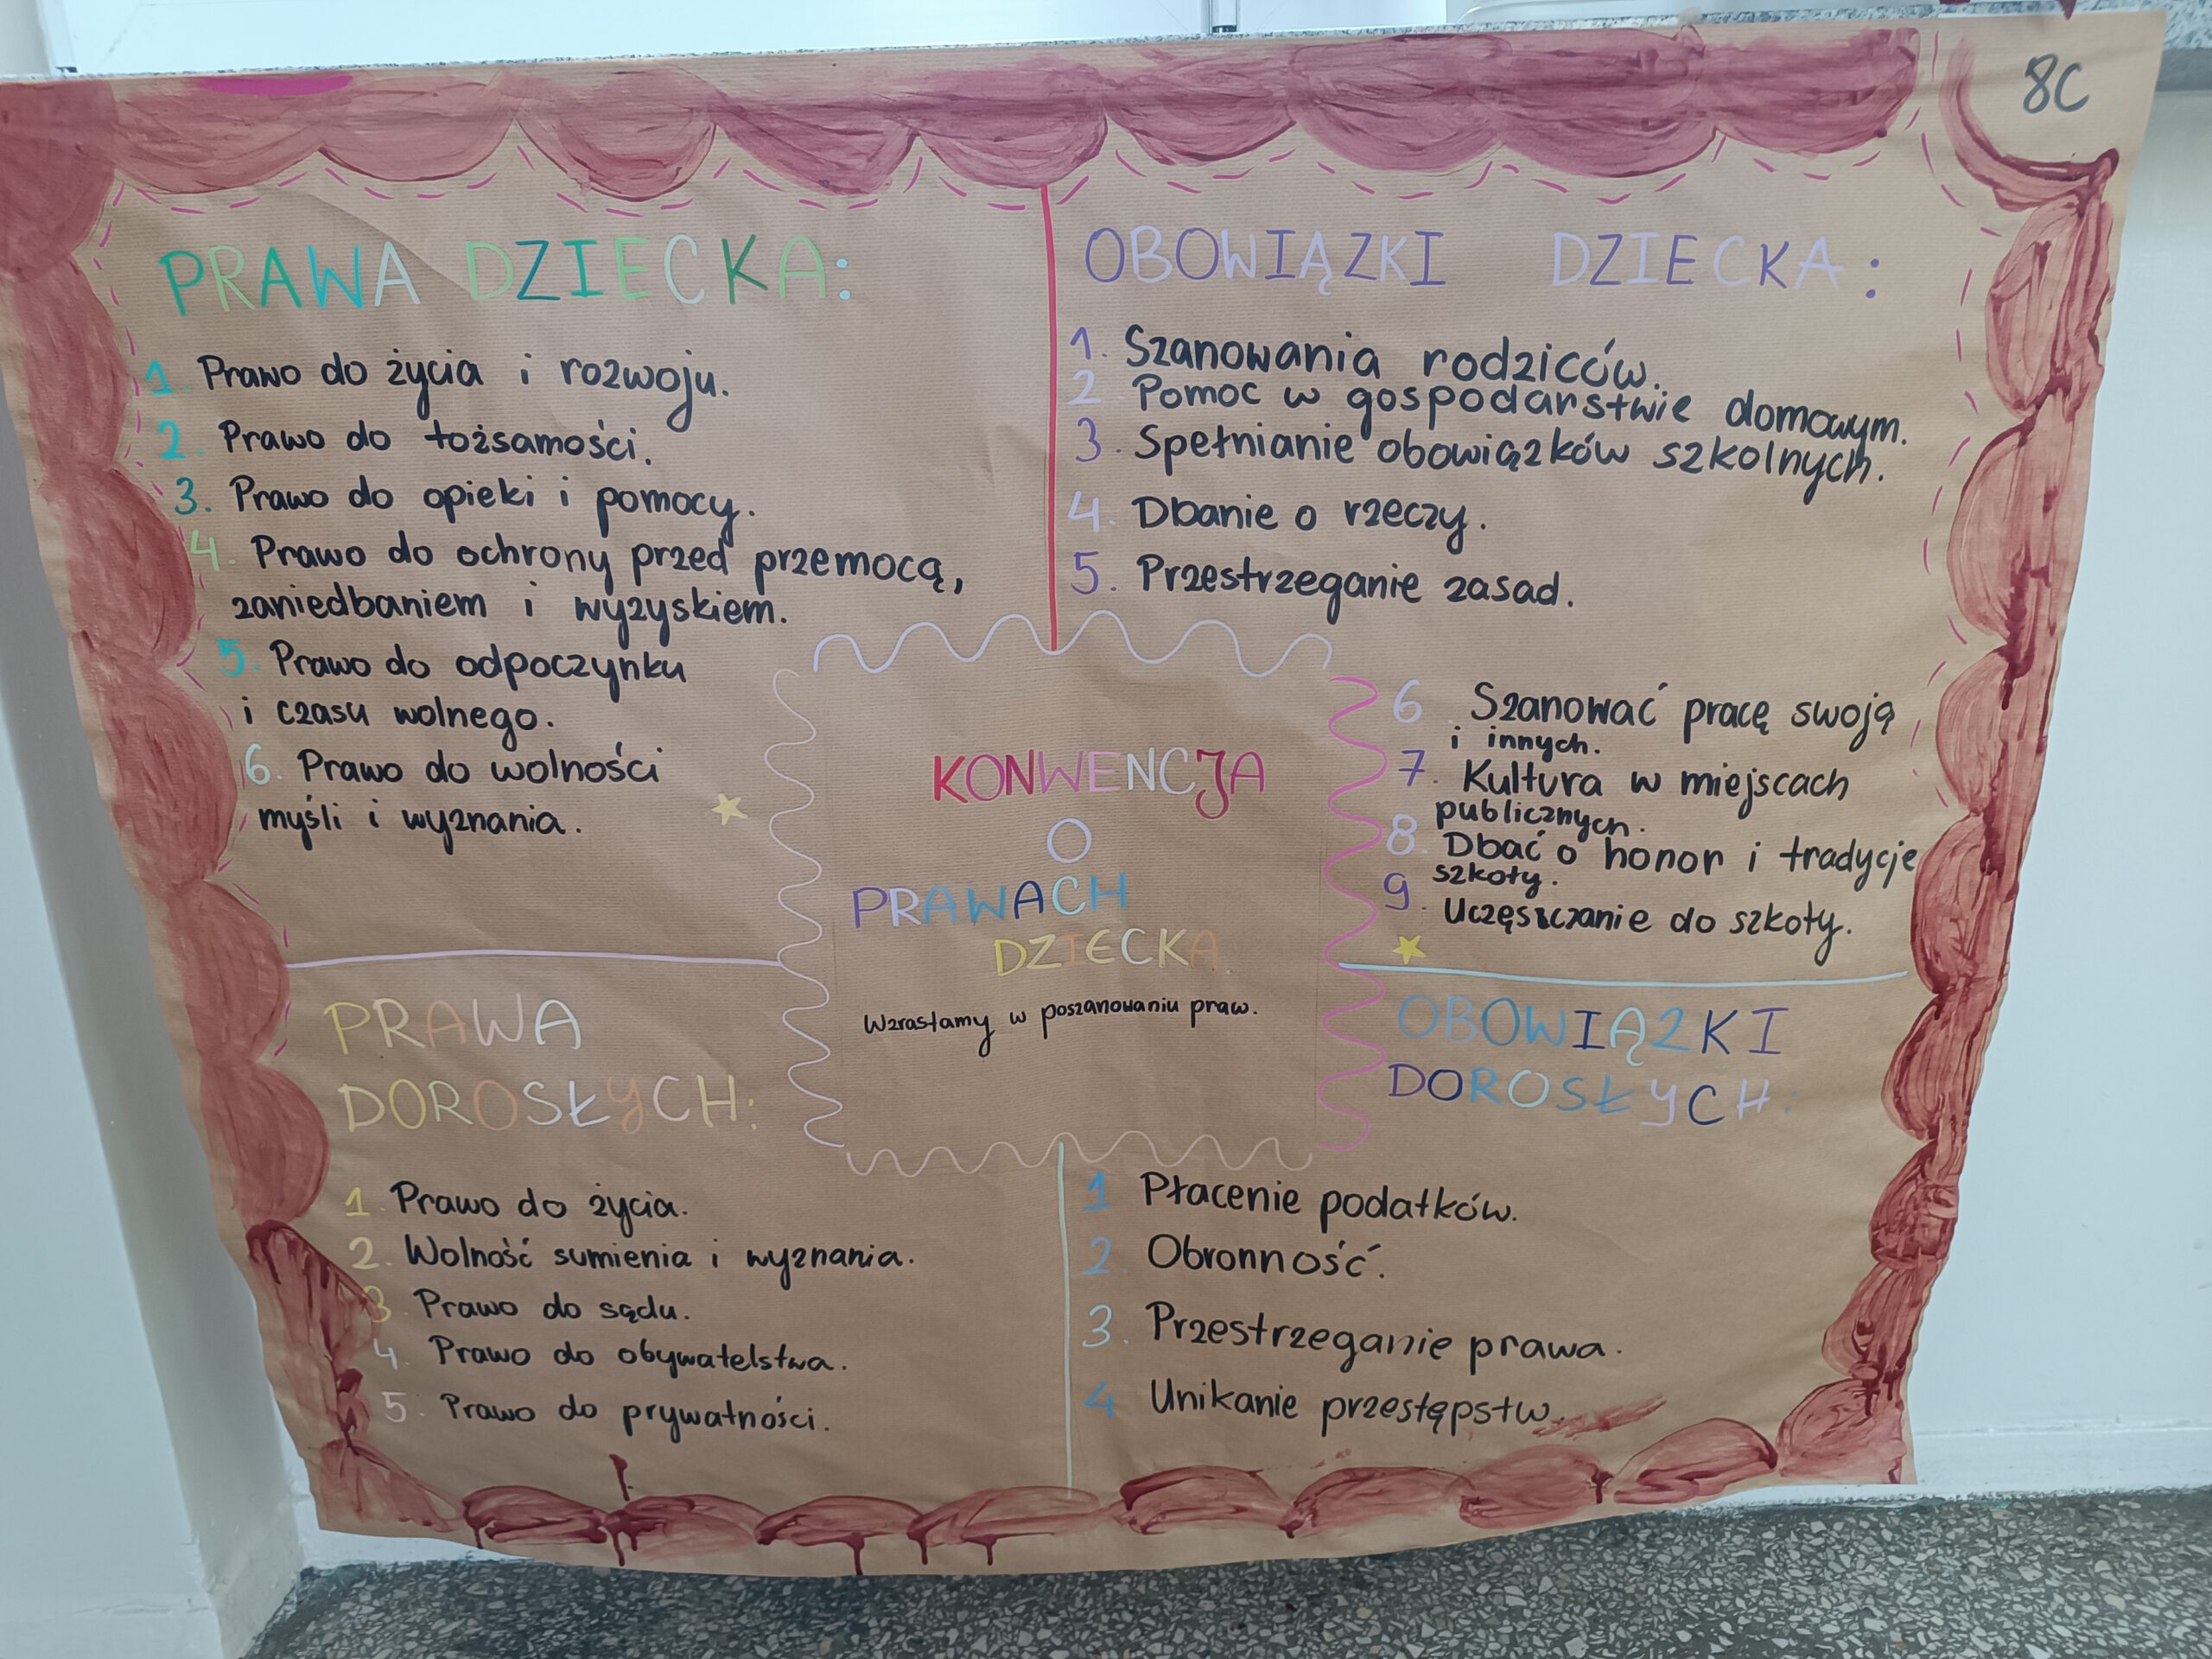 8C
PRAWA DZIECKA:
1. Prawo do życia i rozwoju.
2. Prawo do tożsamości.
3. Prawo do opieki i pomocy.
4. Prawo do ochrony przed przemocą,
zaniedbaniem i wyzyskiem.
5. Prawo do odpoczynku
i czasu wolnego.
6. Prawo do wolności
myśli i wyznania.
OBOWIĄZKI DZIECKA:
1. Szanowania rodziców.
2 Pomoc w gospodarstwie domowym.
3. Spełnianie obowiązków szkolnych.
4. Dbanie o rzeczy.
5. Przestrzeganie zasad.
6 Szanować pracę swoją
i innych.
7. Kultura w miejscach
publicznych.
8. Dbać o honor i tradycje
szkoły.
9. Uczęszczanie do szkoły.
KONWENCJA
O
PRAWACH
DZIECKA.
Wzrastamy w poszanowaniu praw.
PRAWA
DOROSŁYCH:
1. Prawo do życia.
2. Wolność sumienia i wyznania.
3. Prawo do sądu.
4. Prawo do obywatelstwa.
5. Prawo do prywatności.
OBOWIĄZKI
DOROSŁYCH:
1 Płacenie podatków.
2. Obronność.
3. Przestrzeganie prawa.
4 Unikanie przestępstw.